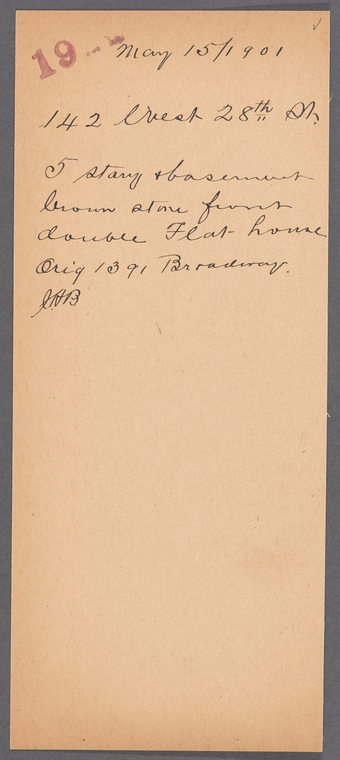 19
May 15/1901
142 West 28th St.
5 story & basement
brown stone front
double Flat house
Orig 1391 Broadway.